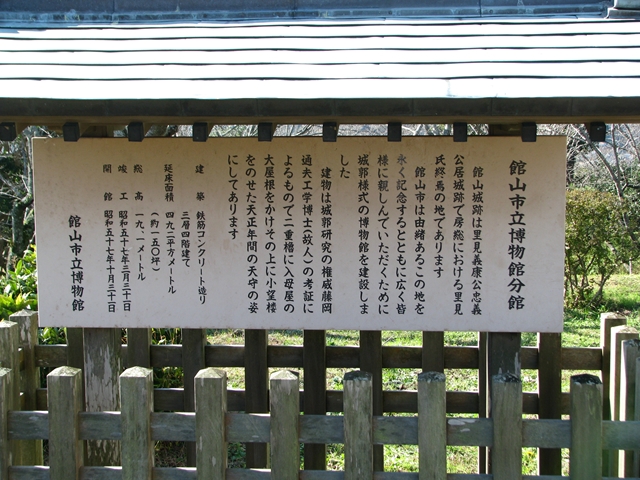 館山市立博物館分館
館山城跡は里見義康公忠義
公居城跡で房総における里見
氏終焉の地であります
館山市は由緒あるこの地を
永く記念するとともに広く皆
様に親しんでいただくために
城郭様式の博物館を建設しま
した
建物は城郭研究の権威藤岡
通夫工学博士(故人)の考証に
よるもので二重櫓に入母屋の
大屋根をかけその上に小望楼
をのせた天正年間の天守の姿
にしてあります
建築 鉄筋コンクリート造り
三層四階建て
延床面積 四九二平方メートル
(約一五〇坪)
総高 一九.一メートル
竣工 昭和五十七年三月三十日
開館 昭和五十七年十月三十日
館山市立博物館